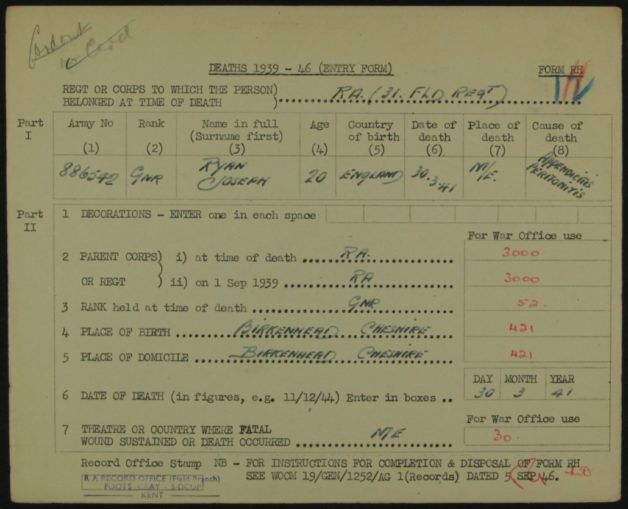 Card
DEATHS 1939 - 46 (ENTRY FORM)
FORM RH
REGT OR CORPS TO WHICH THE PERSON)
BELONGED AT TIME OF DEATH ) R.A. (31. FLD REGT)
Part I
Army No (1)
Rank (2)
Name in full (Surname first) (3)
Age (4)
Country of birth (5)
Date of death (6)
Place of death (7)
Cause of death (8)
886542
GNR
RYAN JOSEPH
20
ENGLAND
30.3.41
M/E.
APPENDICITIS PERITONITIS
Part II
1 DECORATIONS - ENTER one in each space
For War Office use
2 PARENT CORPS) i) at time of death RA. 3000
OR REGT ) ii) on 1 Sep 1939 RA 3000
3 RANK held at time of death GNR 52.
4 PLACE OF BIRTH BIRKENHEAD CHESHIRE 421
5 PLACE OF DOMICILE BIRKENHEAD CHESHIRE 421
DAY MONTH YEAR
6 DATE OF DEATH (in figures, e.g. 11/12/44) Enter in boxes .. 30 3 41
For War Office use
7 THEATRE OR COUNTRY WHERE FATAL
WOUND SUSTAINED OR DEATH OCCURRED M/E 30.
Record Office Stamp NB - FOR INSTRUCTIONS FOR COMPLETION & DISPOSAL OF FORM RH
SEE WOCM 19/GEN/1252/AG 1(Records) DATED 5 SEP 46.
R A RECORD OFFICE (Field Branch)
FOOTS CRAY - SIDCUP
KENT